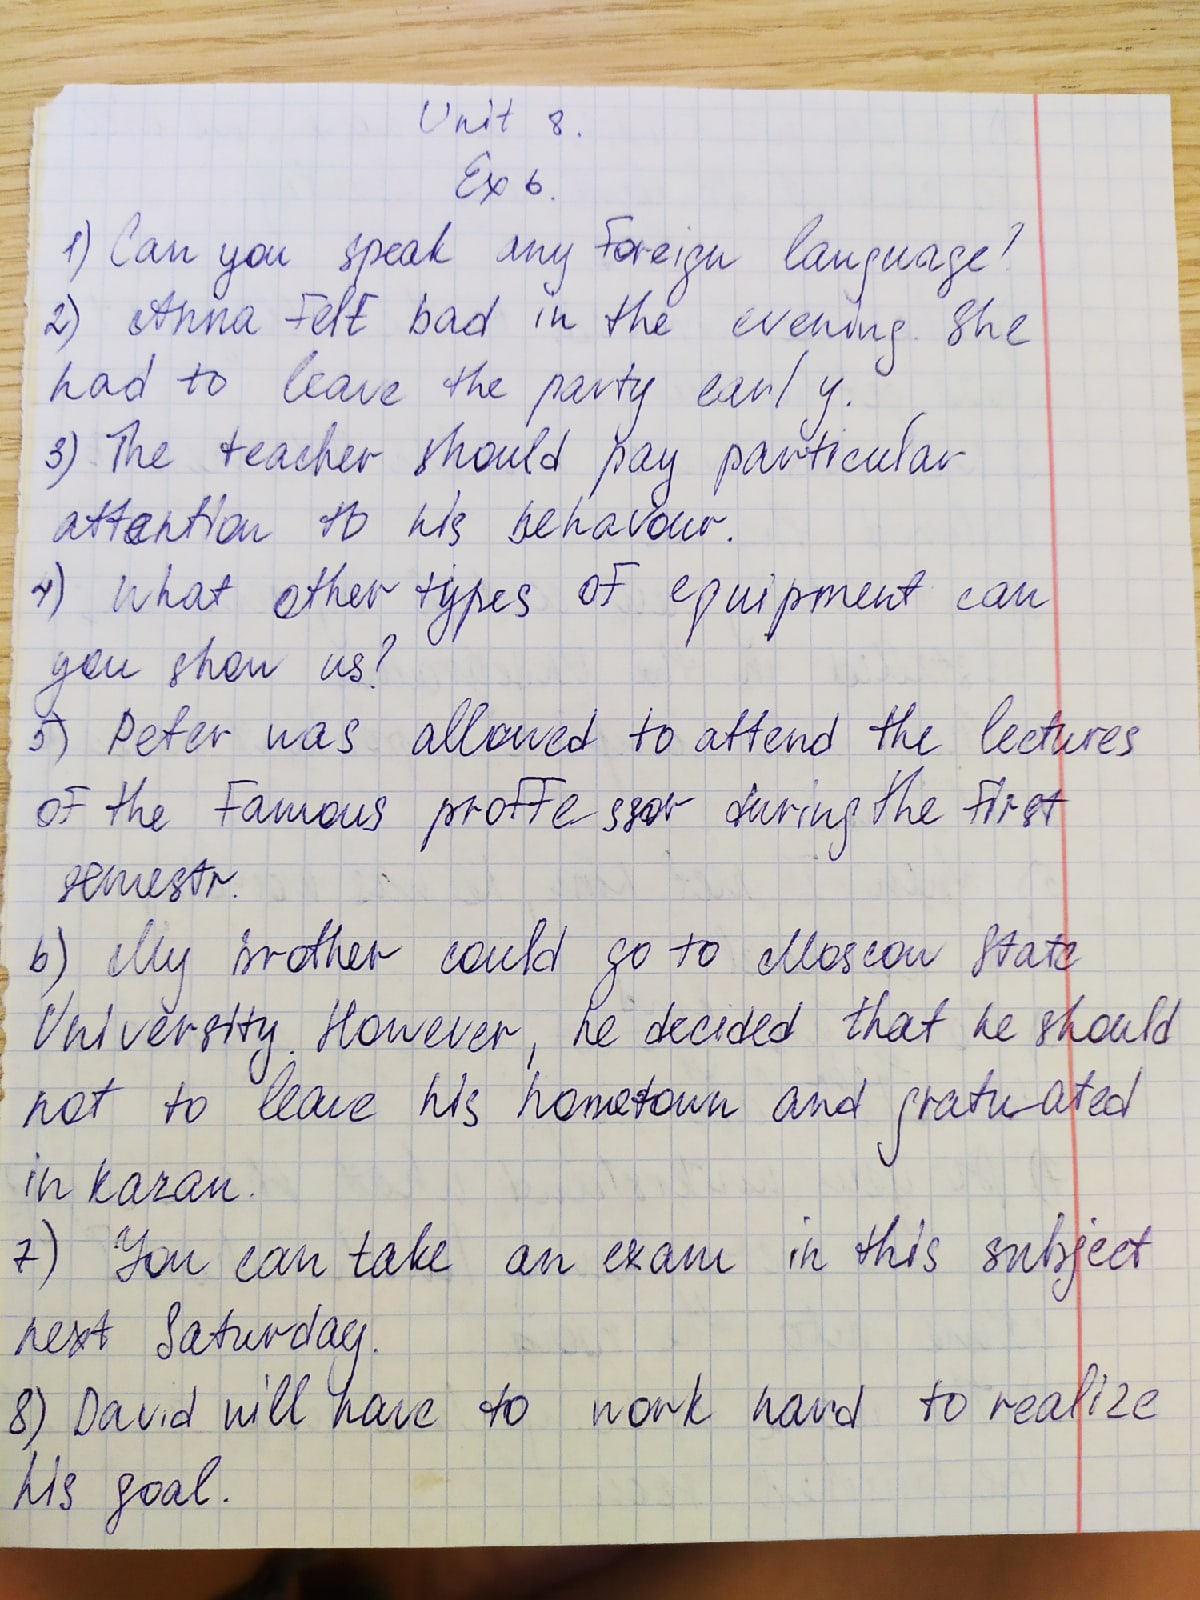 Unit 8.
Ex 6.
1) Can you speak any foreign language?
2) Anna felt bad in the evening. She
had to leave the party early.
3) The teacher should pay particular
attention to his behavour.
4) What other types of equipment can
you show us?
5) Peter was allowed to attend the lectures
of the famous proffessor during the first
semestr.
6) My brother could go to Moscow State
University. However, he decided that he should
not to leave his hometown and gratuated
in Kazan.
7) You can take an exam in this subject
next Saturday.
8) David will have to work hard to realize
his goal.